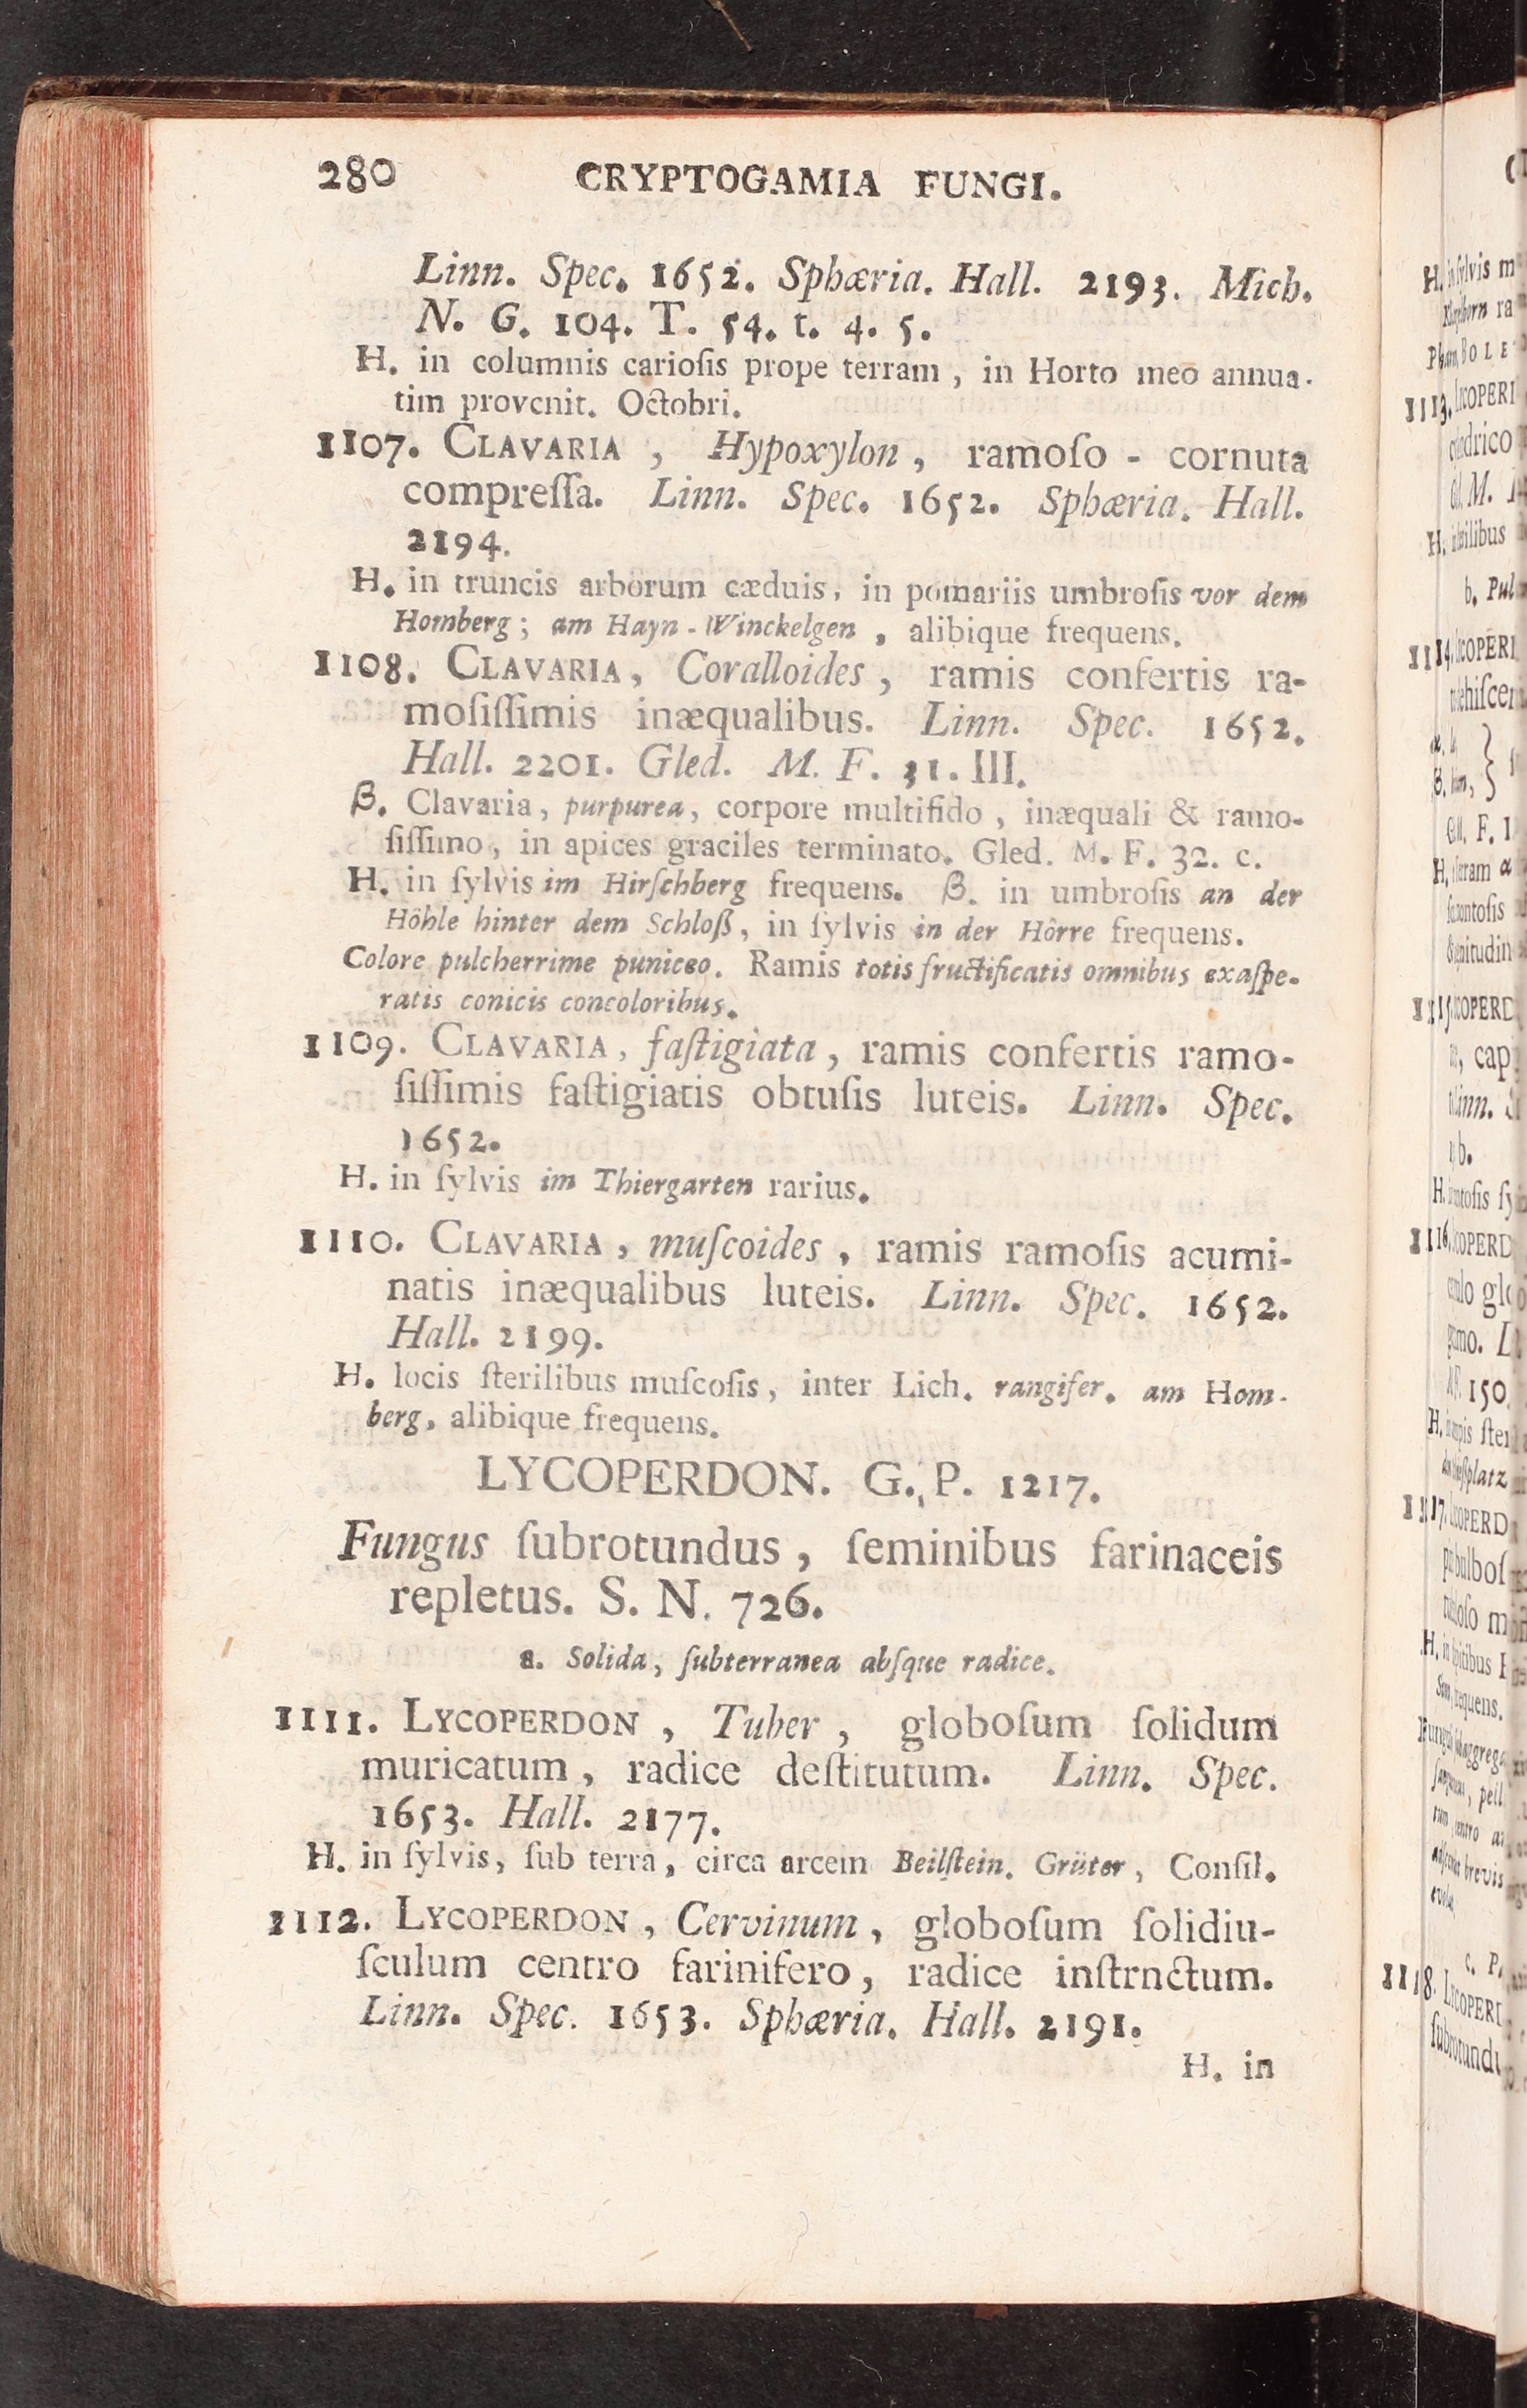 280 CRYPTOGAMIA FUNGI.
Linn. Spec. 1652. Sphæria. Hall. 2193. Mich.
N. G. 104. T. 54. t. 4. 5.
H. in columnis carioſis prope terram, in Horto meo annua-
tim provenit. Octobri.
1107. CLAVARIA, Hypoxylon, ramoſo - cornuta
compreſſa. Linn. Spec. 1652. Sphæria. Hall.
2194.
H. in truncis arborum cæduis, in pomariis umbroſis vor dem
Homberg; am Hayn-Winckelgen, alibique frequens.
1108. CLAVARIA, Coralloides, ramis confertis ra-
moſiſſimis inæqualibus. Linn. Spec. 1652.
Hall. 2201. Gled. M. F. 31. III.
β. Clavaria, purpurea, corpore multifido, inæquali & ramo-
ſiſſimo, in apices graciles terminato. Gled. M. F. 32. c.
H. in ſylvis im Hirſchberg frequens. β. in umbroſis an der
Höhle hinter dem Schloß, in ſylvis in der Hörre frequens.
Colore pulcherrime puniceo. Ramis totis fructificatis omnibus exaſpe-
ratis conicis concoloribus.
1109. CLAVARIA, faſtigiata, ramis confertis ramo-
ſiſſimis faſtigiatis obtuſis luteis. Linn. Spec.
1652.
H. in ſylvis im Thiergarten rarius.
1110. CLAVARIA, muſcoides, ramis ramoſis acumi-
natis inæqualibus luteis. Linn. Spec. 1652.
Hall. 2199.
H. locis ſterilibus muſcoſis, inter Lich. rangifer. am Hom-
berg, alibique frequens.
LYCOPERDON. G. P. 1217.
Fungus ſubrotundus, ſeminibus farinaceis
repletus. S. N. 726.
a. Solida, ſubterranea abſque radice.
1111. LYCOPERDON, Tuber, globoſum ſolidum
muricatum, radice deſtitutum. Linn. Spec.
1653. Hall. 2177.
H. in ſylvis, ſub terra, circa arcem Beilſtein. Grüter, Conſil.
1112. LYCOPERDON, Cervinum, globoſum ſolidiu-
ſculum centro farinifero, radice inſtrnctum.
Linn. Spec. 1653. Sphæria. Hall. 2191.
H. in